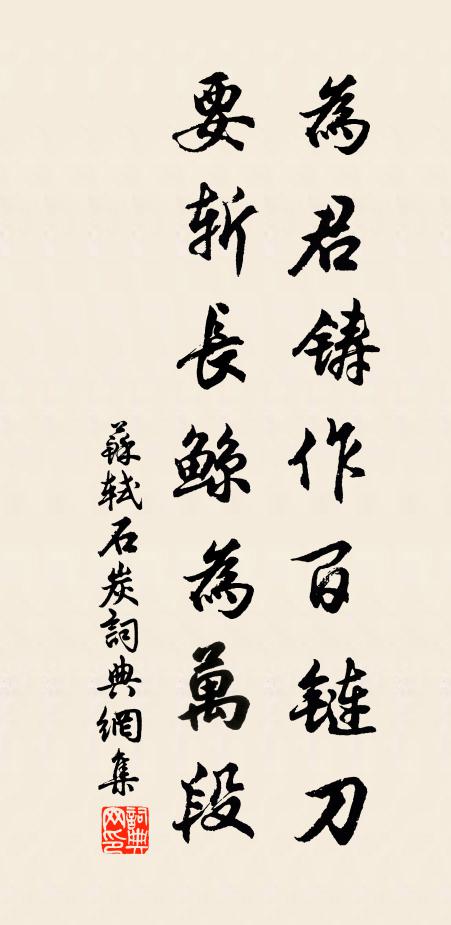 為君鋳作百鏈刀
要斬長鯨為萬段
蘇軾石炭詞典網集
詞典
网印